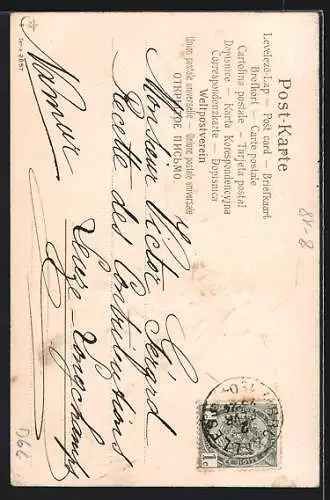 Post-Karte
Levelező-Lap — Post card — Briefkaart
Brefkort — Carte postale
Cartolina postale — Tarjeta postal
Dopisnice — Karta Korespondencyjna
Correspondenzkarte — Dopisnica
Weltpostverein
Union postale universelle — Unione postale universale
ОТКРЫТОЕ ПИСЬМО
Monsieur Victor Gérard
Recette des Contributions
Leuze-Longchamps
Namur
BRUXELLES
1c